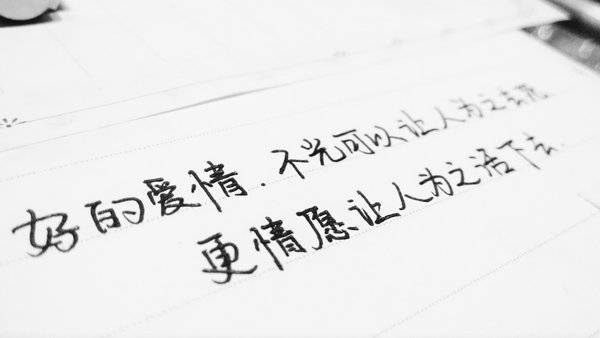 好的爱情.不光可以让人为之去死
更情愿让人为之活下去.